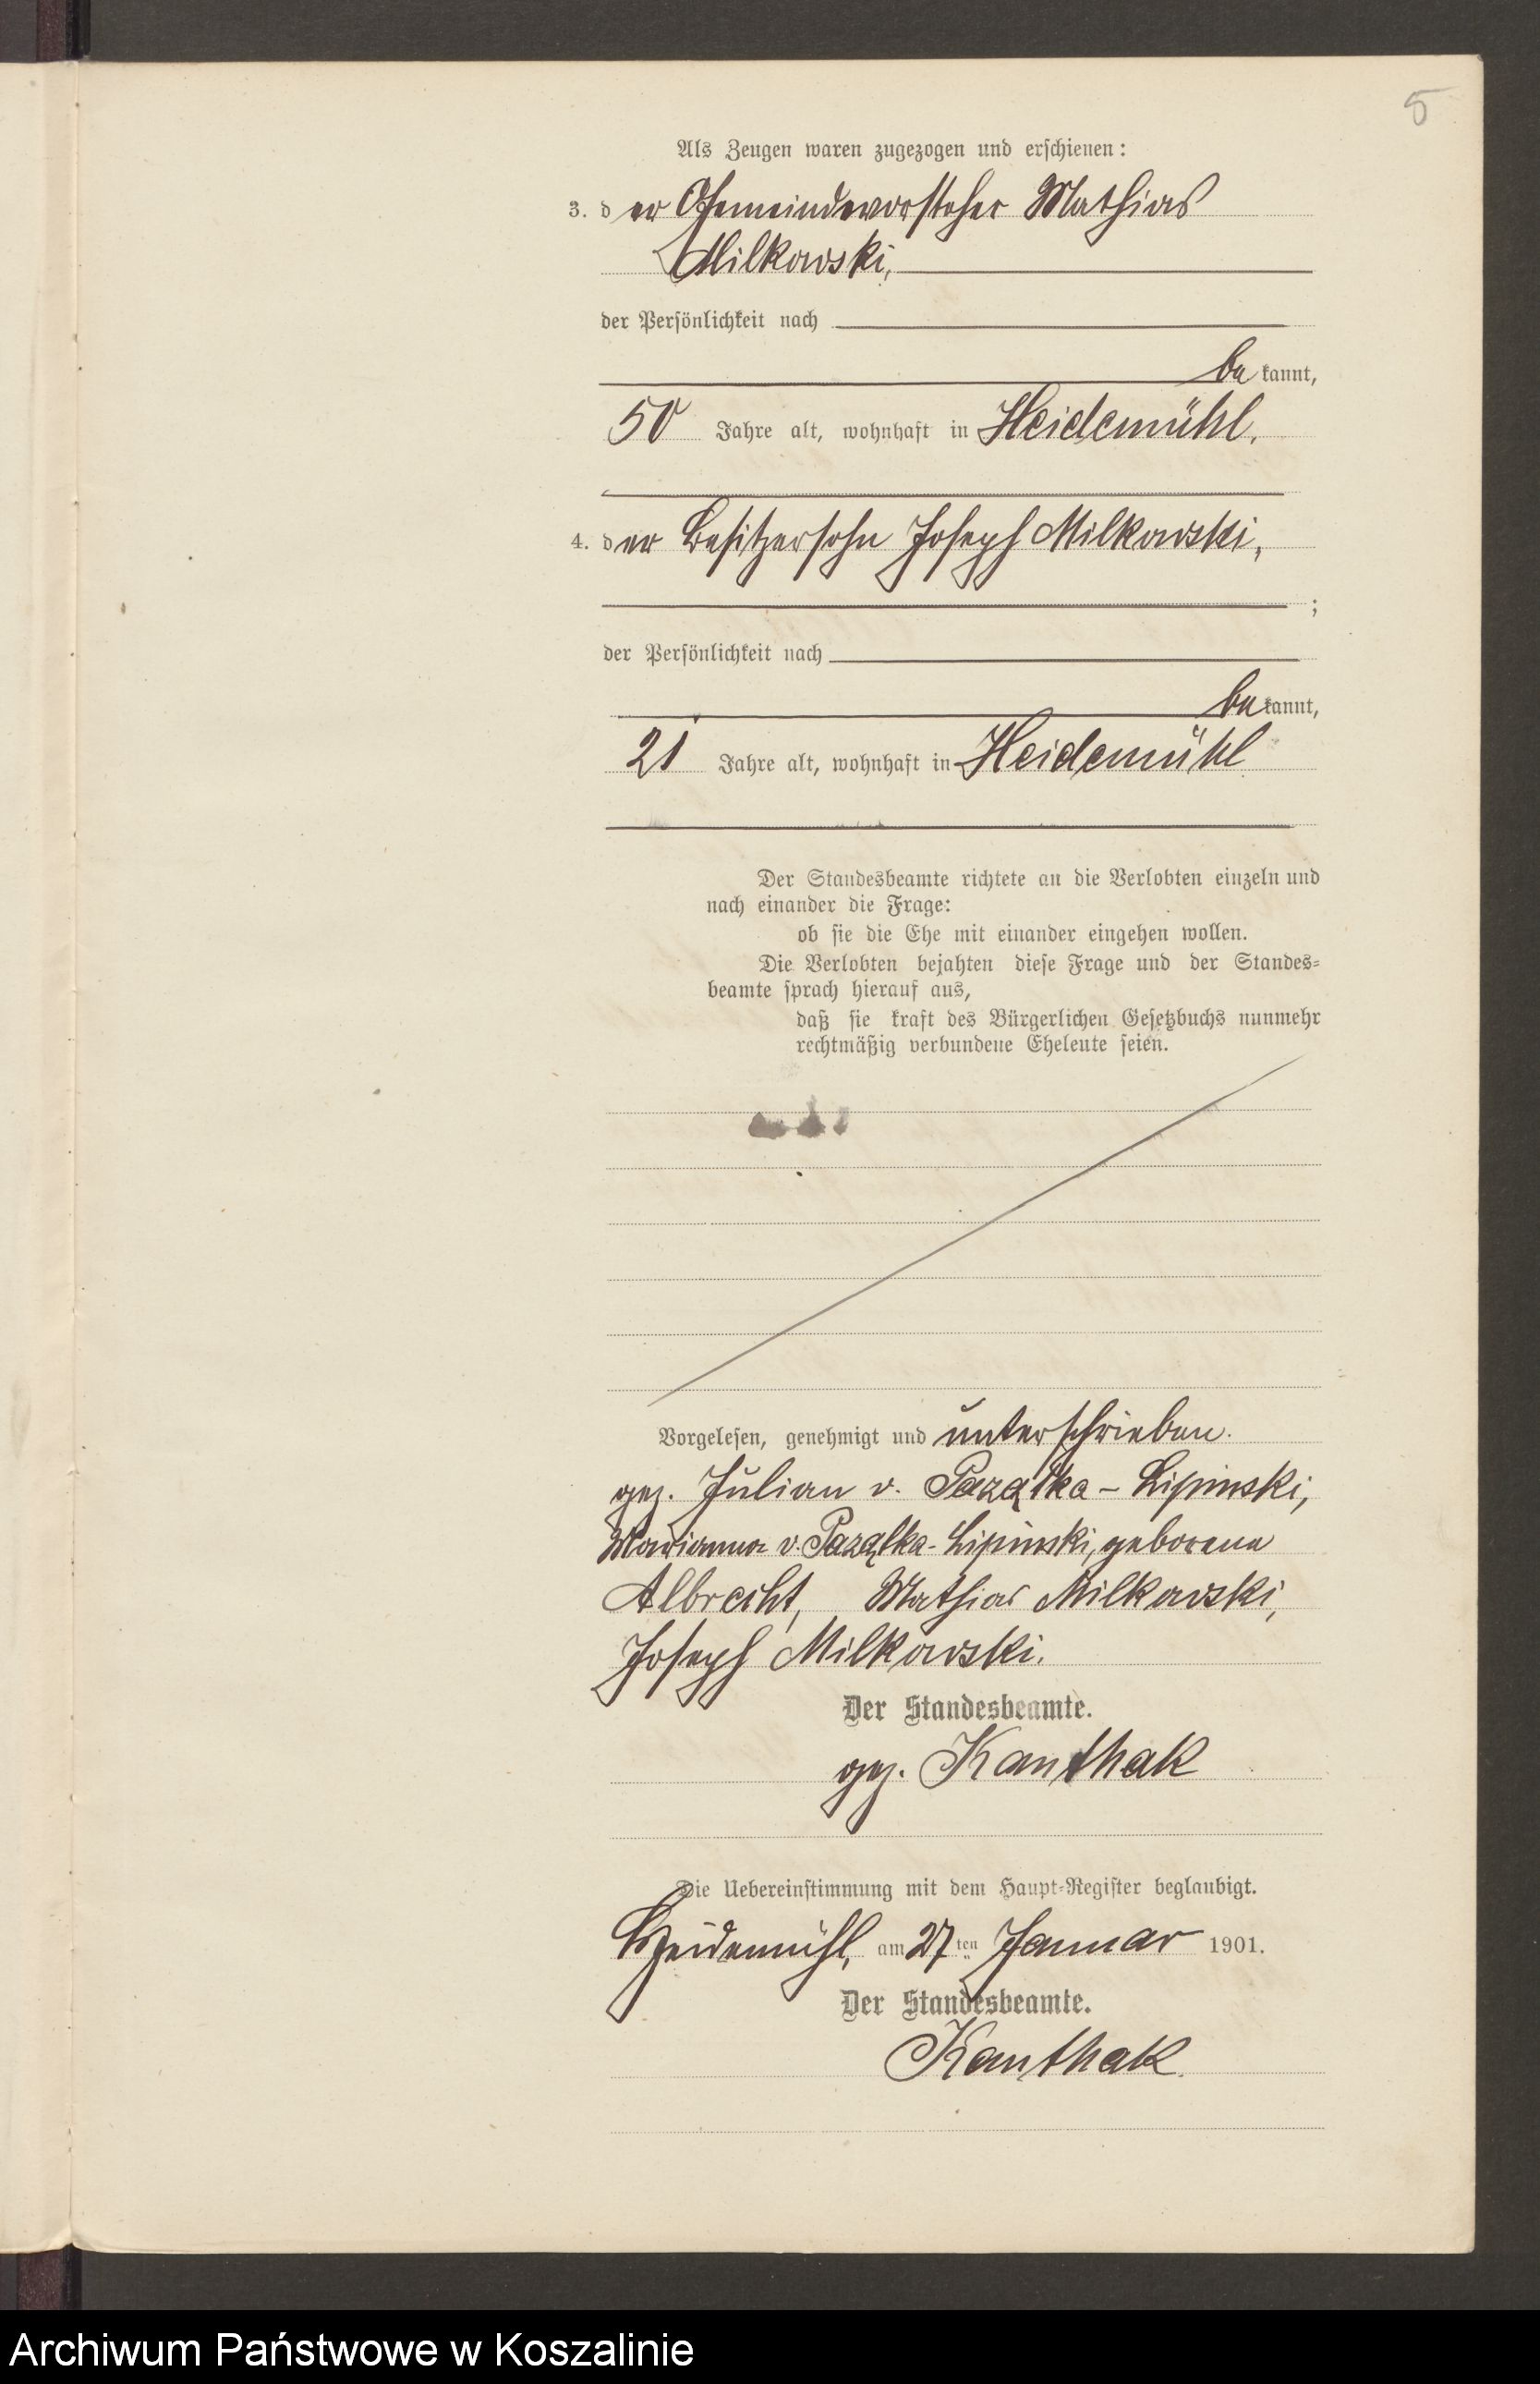 5
Als Zeugen waren zugezogen und erschienen:
3. der Gemeindevorsteher Mathias
Milkowski,
der Persönlichkeit nach
bekannt,
50 Jahre alt, wohnhaft in Heidemühl,
4. der Besitzersohn Joseph Milkowski,
;
der Persönlichkeit nach
bekannt,
21 Jahre alt, wohnhaft in Heidemühl
Der Standesbeamte richtete an die Verlobten einzeln und
nach einander die Frage:
ob sie die Ehe mit einander eingehen wollen.
Die Verlobten bejahten diese Frage und der Standes=
beamte sprach hierauf aus,
daß sie kraft des Bürgerlichen Gesetzbuchs nunmehr
rechtmäßig verbundene Eheleute seien.
Vorgelesen, genehmigt und unterschrieben.
gez. Julian v. Pazątka-Lipinski,
Marianna v. Pazątka-Lipinski, geborene
Albrecht, Mathias Milkowski,
Joseph Milkowski.
Der Standesbeamte.
gez. Kanthak
Die Uebereinstimmung mit dem Haupt=Register beglaubigt.
Heidemühl, am 27ten Januar 1901.
Der Standesbeamte.
Kanthak.
Archiwum Państwowe w Koszalinie